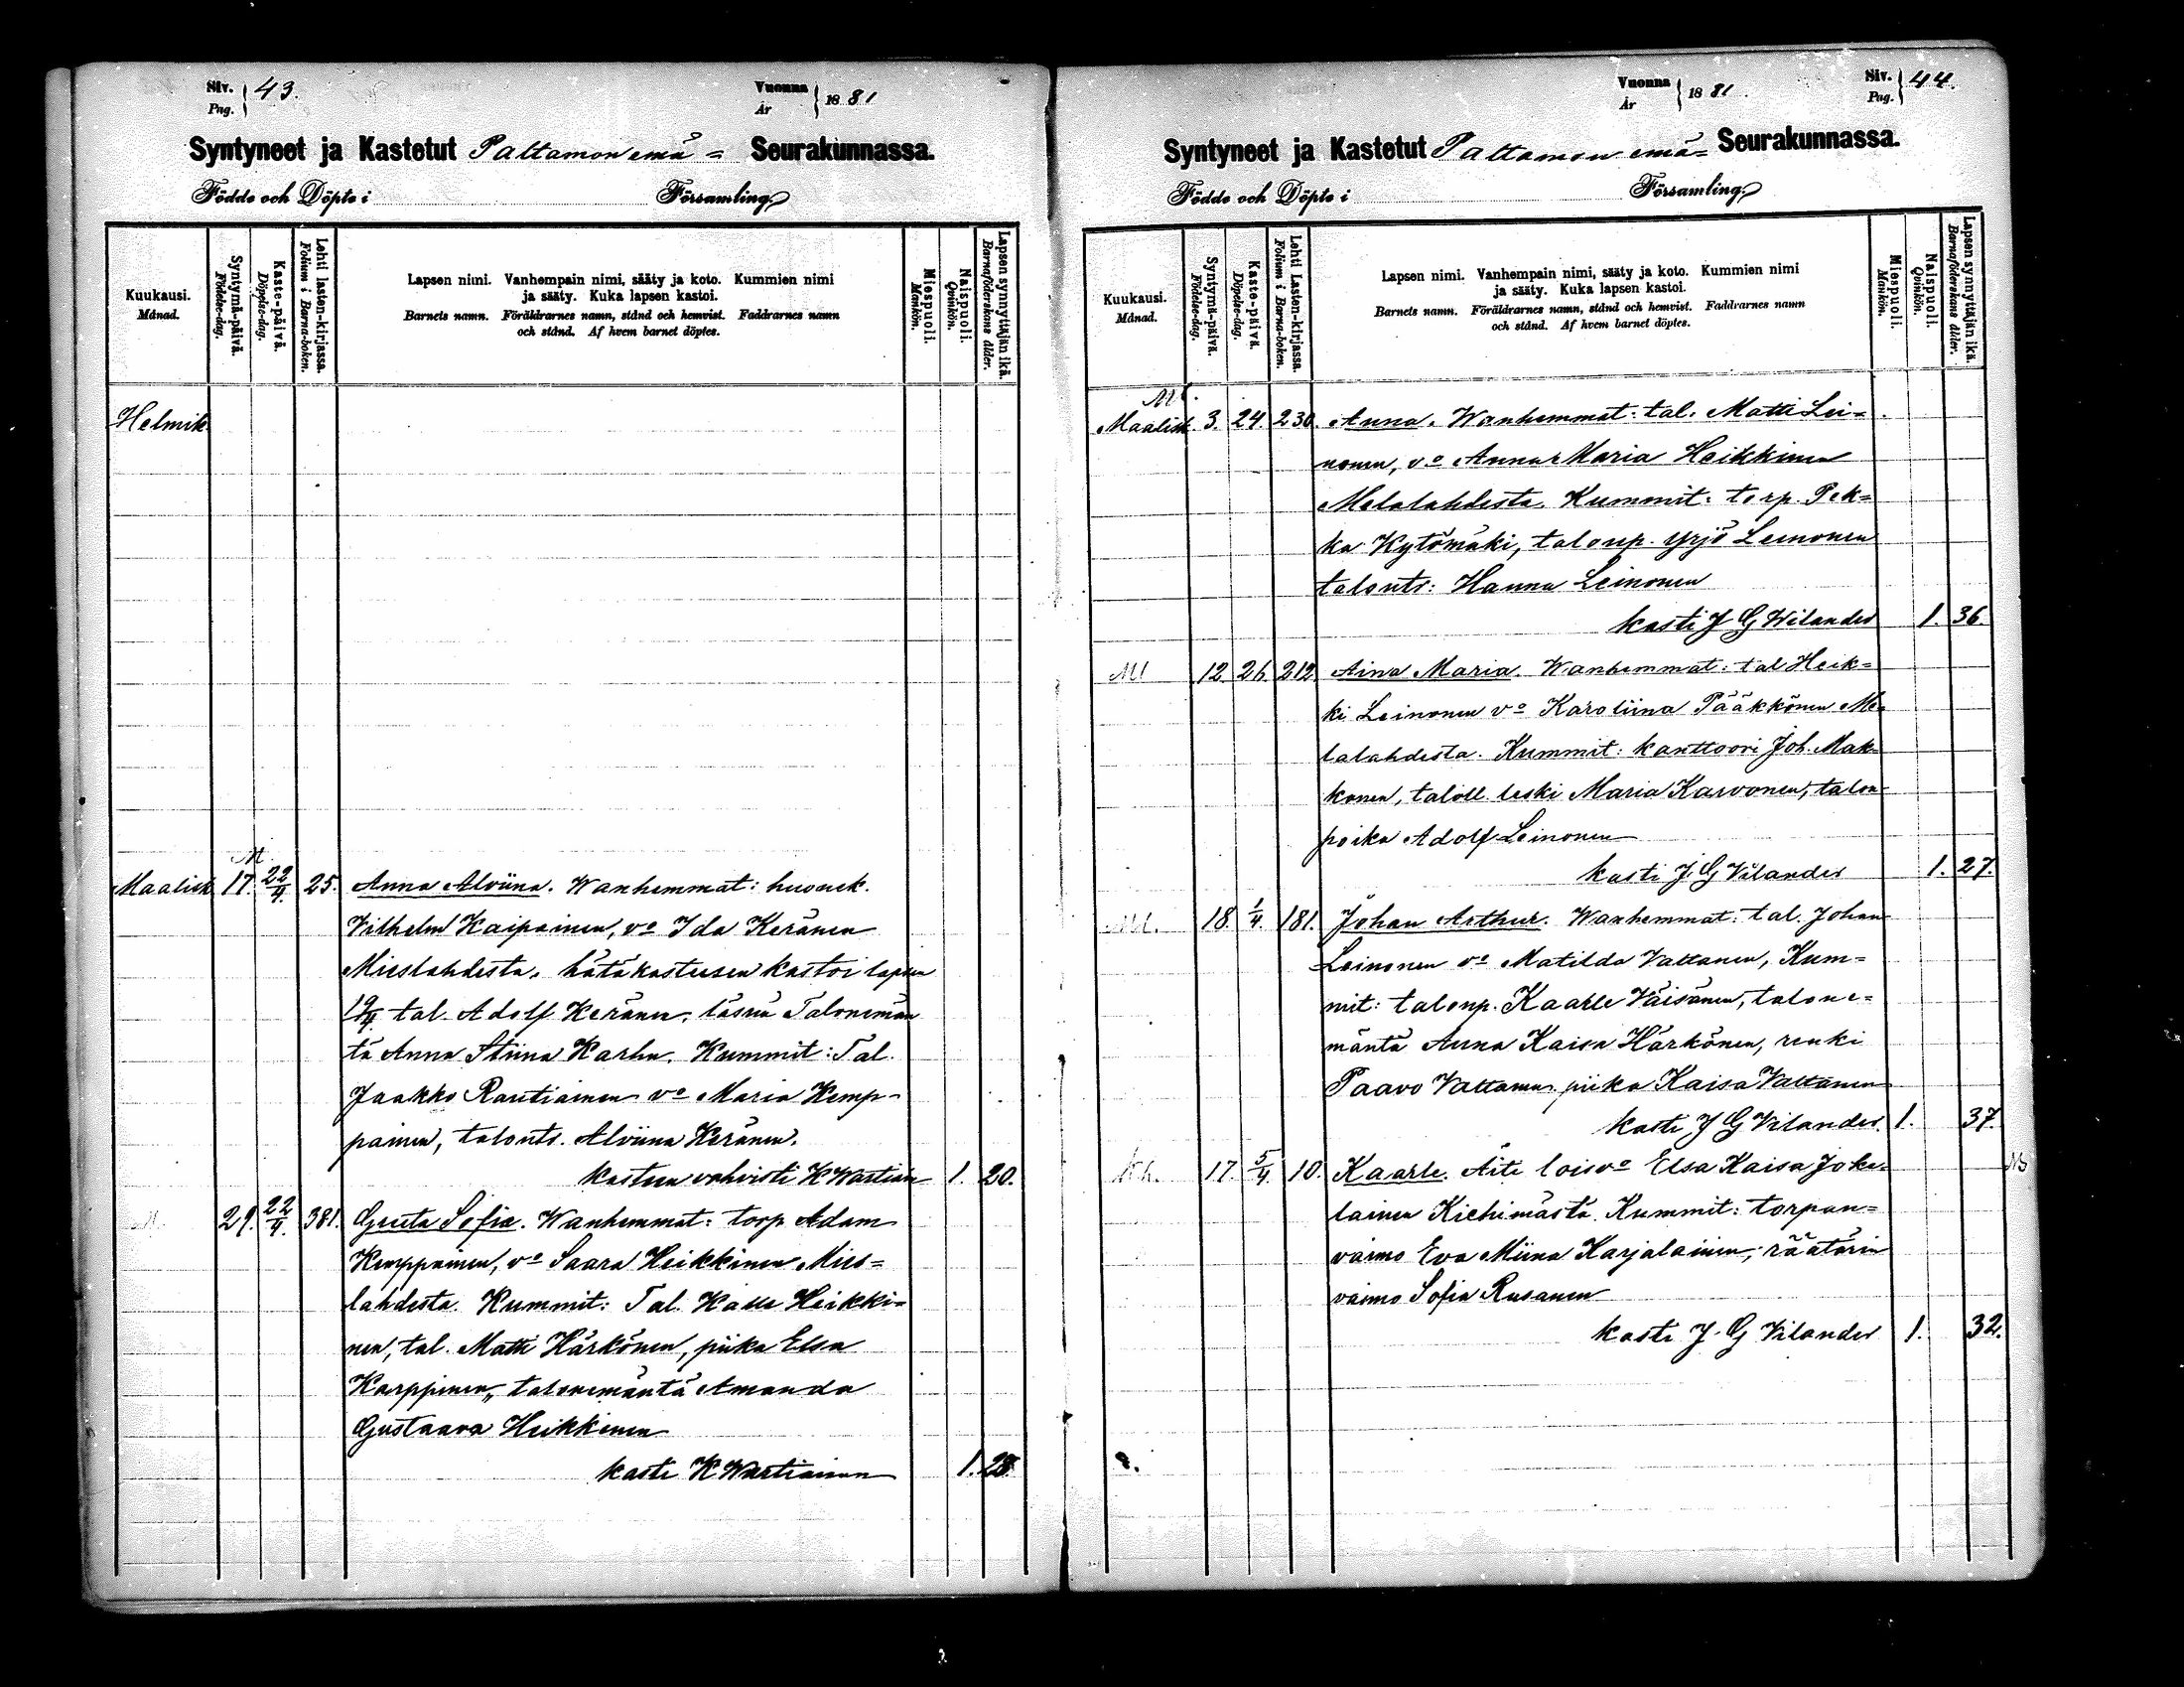 Siv. Pag. 43.
Vuonna År 1881
Syntyneet ja Kastetut Paltamon emä= Seurakunnassa.
Födde och Döpte i Församling
Kuukausi. Månad.
Syntymä-päivä. Födelse-dag.
Kaste-päivä. Döpelse-dag.
Lehti lasten-kirjassa. Folium i Barna-boken.
Lapsen nimi. Vanhempain nimi, sääty ja koto. Kummien nimi
ja sääty. Kuka lapsen kastoi.
Barnets namn. Föräldrarnes namn, stånd och hemvist. Faddrarnes namn
och stånd. Af hvem barnet döptes.
Miespuoli. Mankön.
Naispuoli. Qvinkön.
Lapsen synnyttäjän ikä. Barnaföderskans ålder.
Helmik.
M.
Maalisk 17. 22/4. 25. Anna Alviina. Wanhemmat: huonek.
Vilhelm Kaipainen, vo Ida Keränen
Mieslahdesta. hätäkasteesen kastoi lapsen
19/4 tal. Adolf Keränen, läsnä Taloneman
tä Anna Stiina Karhu. Kummit: Tal.
Jaakko Rautiainen vo Maria Kemp-
painen, talonts. Alviina Keränen.
kasteen vahvisti K Wartiain 1. 20.
M. 29. 22/4. 381. Greeta Sofia. Wanhemmat: torp Adam
Kemppainen, vo Saara Heikkinen Mies=
lahdesta. Kummit: Tal. Kalle Heikki=
nen, tal. Matti Härkönen, piika Elsa
Karppinen, talonemäntä Amanda
Gustaava Heikkinen
kasti K Wartiainen 1. 28.
Vuonna År 1881.
Siv. Pag. 44.
Syntyneet ja Kastetut Paltamon emä= Seurakunnassa.
Födde och Döpte i Församling
Kuukausi. Månad.
Syntymä-päivä. Födelse-dag.
Kaste-päivä. Döpelse-dag.
Lehti Lasten-kirjassa. Folium i Barna-boken.
Lapsen nimi. Vanhempain nimi, sääty ja koto. Kummien nimi
ja sääty. Kuka lapsen kastoi.
Barnets namn. Föräldrarnes namn, stånd och hemvist. Faddrarnes namn
och stånd. Af hvem barnet döptes.
Miespuoli. Mankön.
Naispuoli. Qvinkön.
Lapsen synnyttäjän ikä. Barnaföderskans ålder.
Ml.
Maalisk. 3. 24. 230. Anna. Wanhemmat: tal. Matti Lei=
nonen, vo Anna Maria Heikkinen
Melalahdesta. Kummit: torp. Pek=
ka Kytömäki, talonp. Yrjö Leinonen
talonts: Hanna Leinonen
kasti J G Wilander 1. 36.
Ml 12. 26. 212. Aina Maria. Wanhemmat: tal Heik=
ki Leinonen vo Karoliina Pääkkönen Me=
lalahdesta. Kummit: kanttoori Joh. Mak=
konen, taloll. leski Maria Karvonen, talon
poika Adolf Leinonen
kasti J G Vilander 1. 27.
Ml. 18. 1/4. 181. Johan Arthur. Wanhemmat: tal. Johan
Leinonen vo Matilda Valtanen, Kum=
mit: talonp. Kaarle Väisänen, talone=
mäntä Anna Kaisa Härkönen, renki
Paavo Valtanen, piika Kaisa Valtanen
kasti J G Vilander. 1. 37.
Kh. 17. 5/4. 10. Kaarle. Äiti loisvo Elsa Kaisa Joke-
lainen Kiehimästä. Kummit: torpan=
vaimo Eva Miina Karjalainen, räätärin
vaimo Sofia Rusanen
kasti J. G Vilander 1. 32.